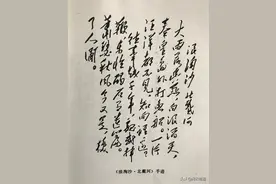 浪淘沙 北戴河
大雨落幽燕,白浪滔天,
秦皇岛外打鱼船。一片
汪洋都不见,知向谁边?
往事越千年,魏武挥
鞭,东临碣石有遗篇。
萧瑟秋风今又是,换
了人间。
《浪淘沙·北戴河》手迹